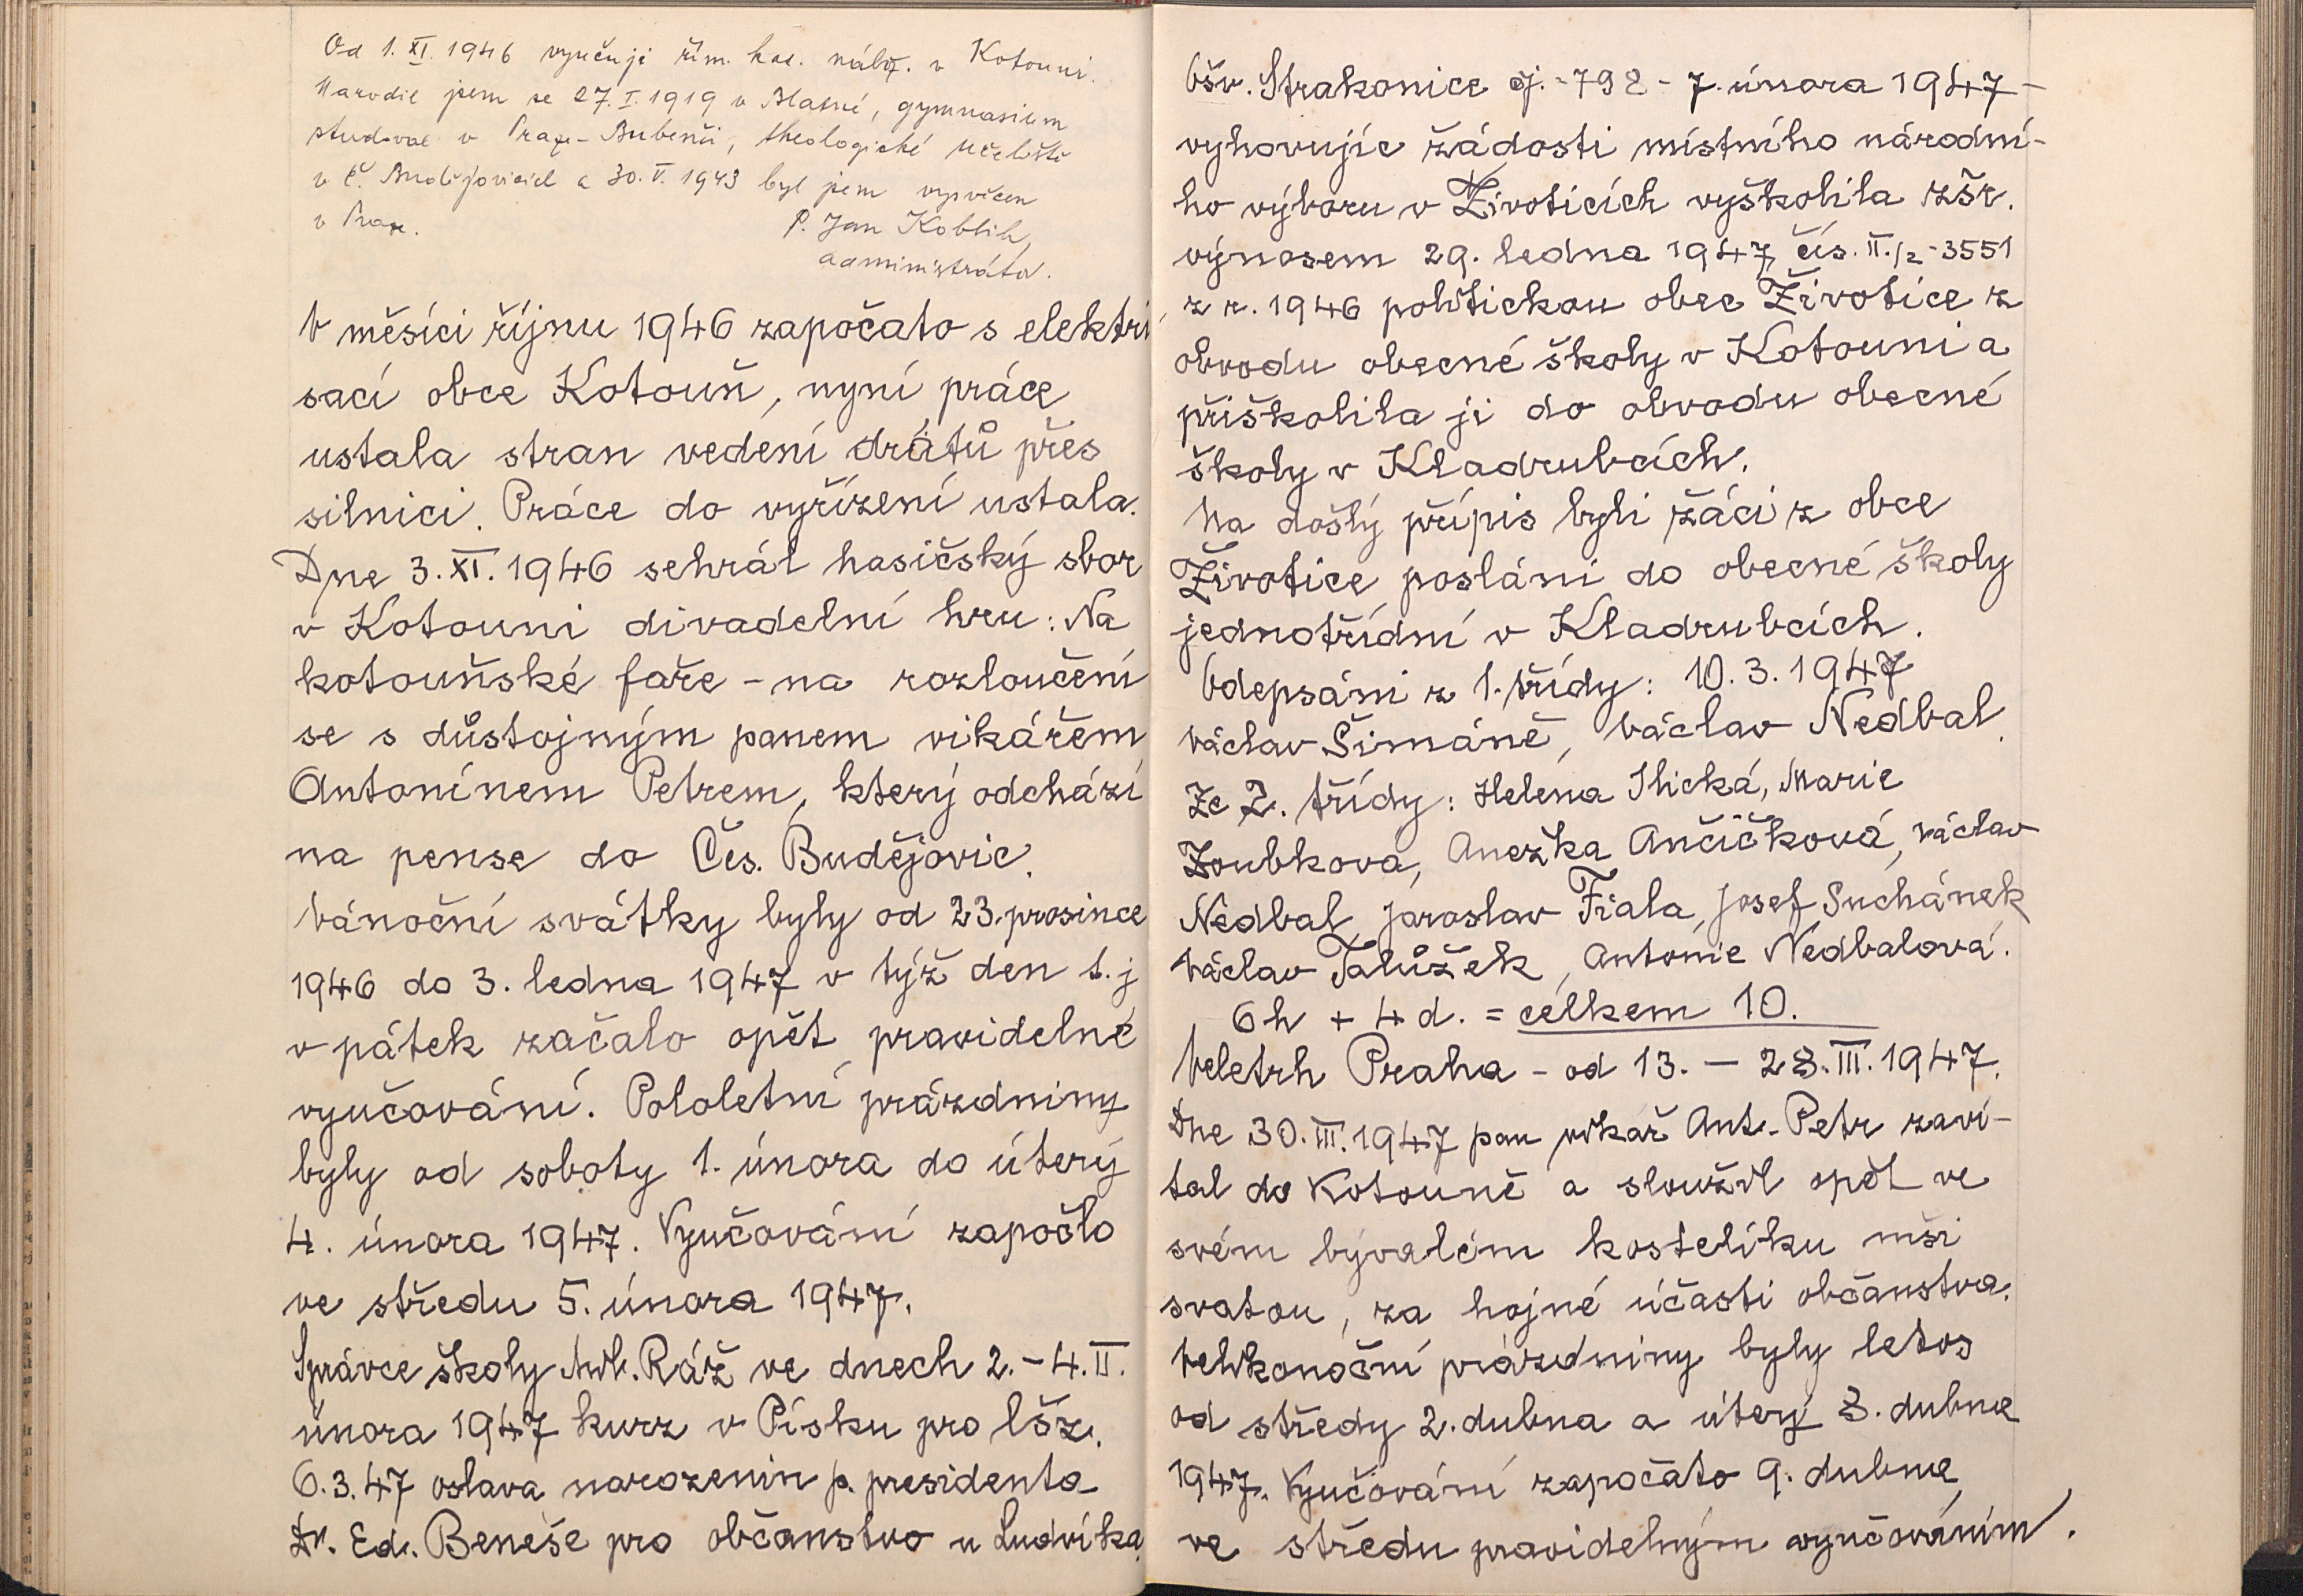 Od 1. XI. 1946 vyučuji řím. kat. nábož. v Kotouni.
Narodil jsem se 27. I. 1919 v Blatné, gymnasium
studoval v Praze-Bubenči, theologické učeliště
v Č. Budějovicích a 30. V. 1943 byl jsem vysvěcen
v Praze.
P. Jan Koblih,
administrátor.
V měsíci říjnu 1946 započato s elektri
sací obce Kotouň, nyní práce
ustala stran vedení drátů přes
silnici. Práce do vyřízení ustala.
Dne 3. XI. 1946 sehrál hasičský sbor
v Kotouni divadelní hru: Na
kotouňské faře - na rozloučení
se s důstojným panem vikářem
Antonínem Petrem, který odchází
na pense do Čes. Budějovic.
Vánoční svátky byly od 23. prosince
1946 do 3. ledna 1947 v týž den t. j
v pátek začalo opět pravidelné
vyučování. Pololetní prázdniny
byly od soboty 1. února do úterý
4. února 1947. Vyučování započlo
ve středu 5. února 1947.
Správce školy Ráž ve dnech 2. - 4. II.
února 1947 kurz v Písku pro lšz.
6. 3. 47 oslava narozenin p. presidenta
Dr. Ed. Beneše pro občanstvo u Ludvíka
Ošv. Strakonice čj. - 792 - 7. února 1947 -
vyhovujíc žádosti místního národní-
ho výboru v Životicích vyškolila zšr.
výnosem 29. ledna 1947, čís. II./2 - 3551
z r. 1946 politickou obec Životice z
obvodu obecné školy v Kotouni a
přiškolila ji do obvodu obecné
školy v Kladrubcích.
Na došlý přípis byli žáci z obce
Životice posláni do obecné školy
jednotřídní v Kladrubcích.
Odepsáni z 1. třídy: 10. 3. 1947
Václav Šimáně, Václav Nedbal.
Ze 2. třídy: Helena Thická, Marie
Zoubkova, Anežka Ančičková, Václav
Nedbal, Jaroslav Fiala, Josef Suchánek
Václav Talůžek, Antonie Nedbalová.
6 h + 4 d. = celkem 10.
Veletrh Praha - od 13. - 23. III. 1947.
Dne 30. III. 1947 pan vikář Ant. Petr zaví-
tal do Kotouně a sloužil opět ve
svém bývalém kostelíku mši
svatou, za hojné účasti občanstva.
Velikonoční prázdniny byly letos
od středy 2. dubna a úterý 8. dubna
1947. Vyučování započato 9. dubna
ve středu pravidelným vyučováním.